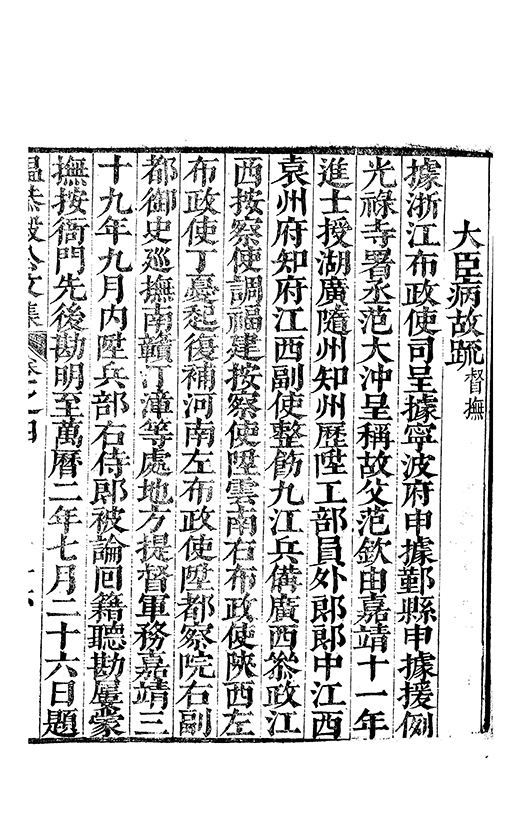 大臣病故疏督撫
據浙江布政使司呈據寧波府申據鄞縣申據援例
光祿寺署丞范大沖呈稱故父范欽由嘉靖十一年
進士授湖廣隨州知州歷陞工部員外郎郎中江西
袁州府知府江西副使整飭九江兵備廣西叅政江
西按察使調福建按察使陞雲南右布政使陝西左
布政使丁憂起復補河南左布政使陞都察院右副
都御史巡撫南贛汀漳等處地方提督軍務嘉靖三
十九年九月內陞兵部右侍郎被論回籍聽勘屢蒙
撫按衙門先後勘明至萬曆二年七月二十六日題
溫恭毅公文集 卷之四